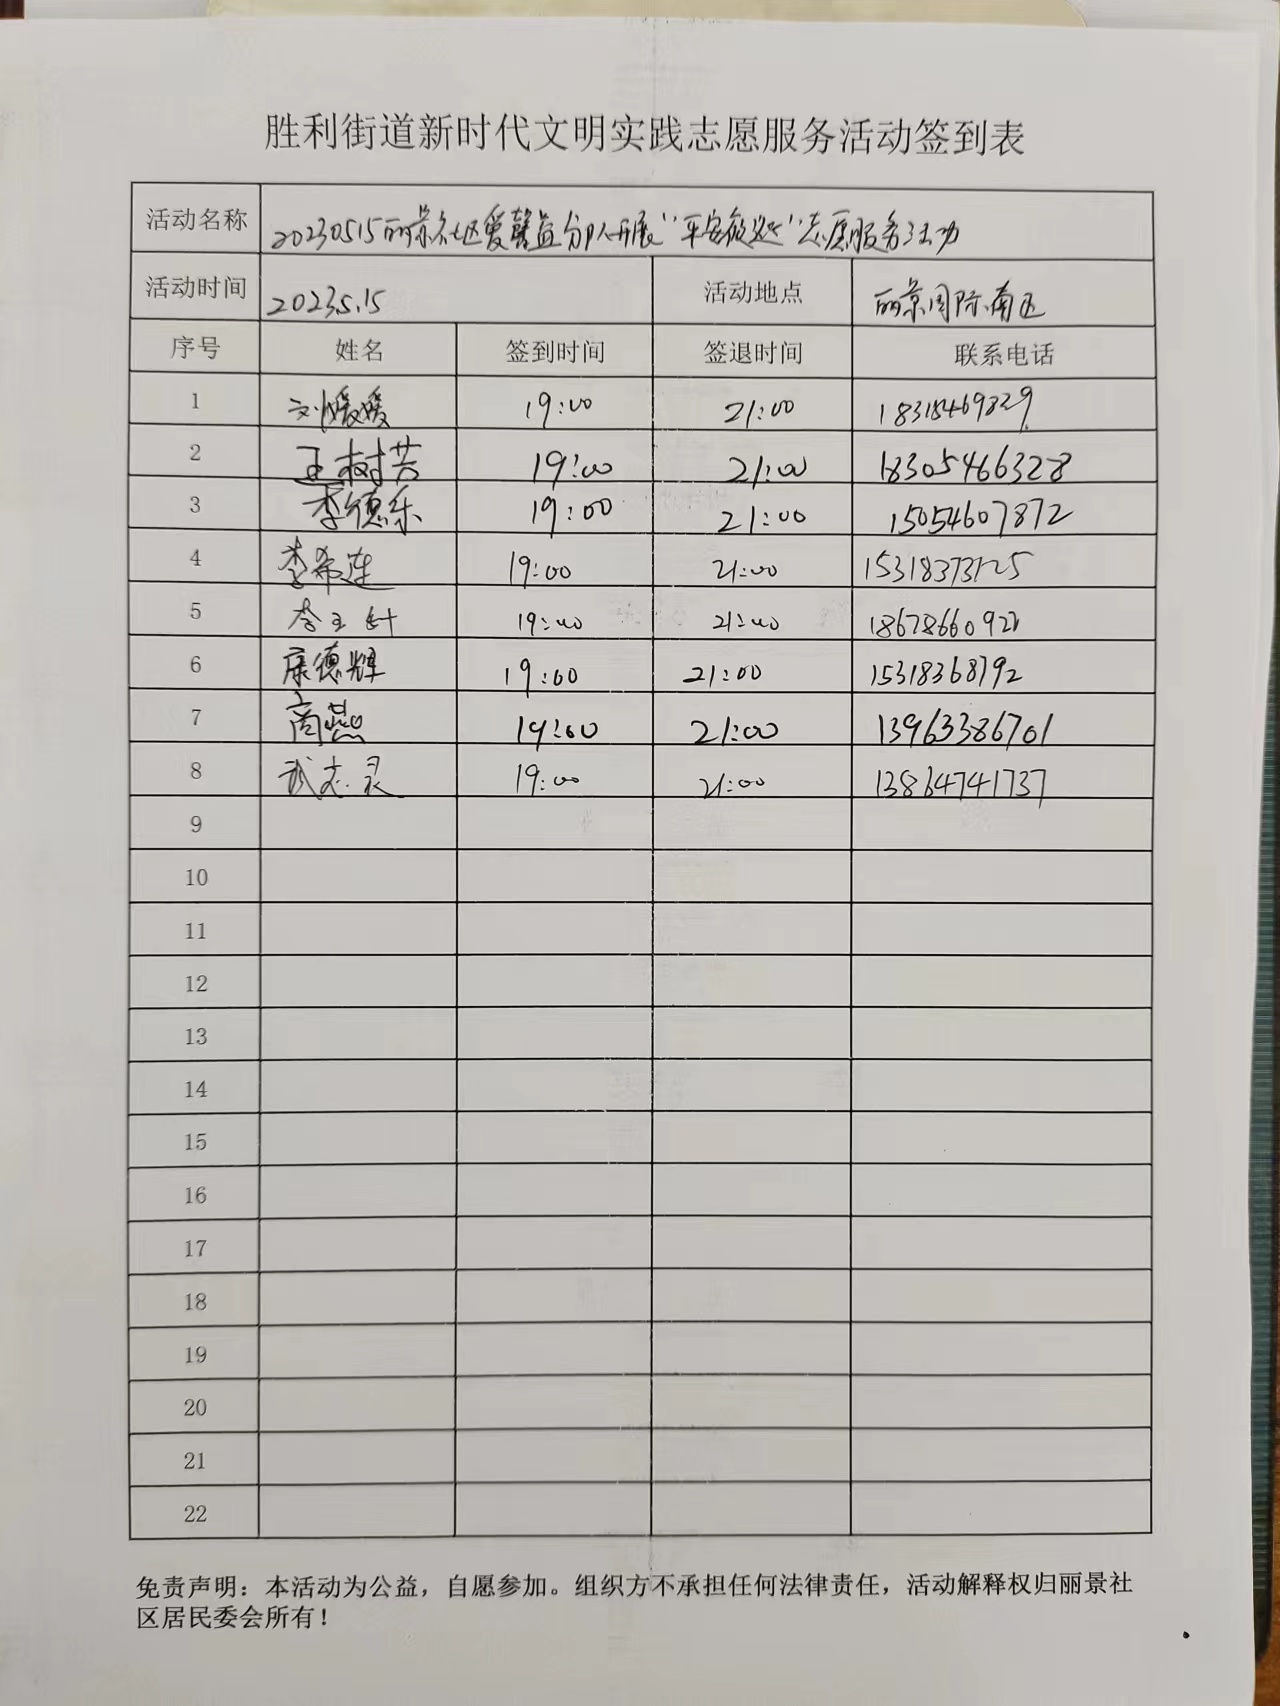 胜利街道新时代文明实践志愿服务活动签到表
活动名称 20230515丽景社区爱馨益分队开展"平安夜巡"志愿服务活动
活动时间 2023.5.15 活动地点 丽景国际南区
序号 姓名 签到时间 签退时间 联系电话
1 刘媛媛 19:00 21:00 18315469829
2 王树芳 19:00 21:00 18305466328
3 李德乐 19:00 21:00 15054607872
4 李希连 19:00 21:00 15318373125
5 李玉 19:00 21:00
6 康德辉 19:00 21:00 15318368792
7 商燕 19:00 21:00 13963386701
8 武志灵 19:00 21:00 13864741737
9
10
11
12
13
14
15
16
17
18
19
20
21
22
免责声明：本活动为公益，自愿参加。组织方不承担任何法律责任，活动解释权归丽景社
区居民委会所有！